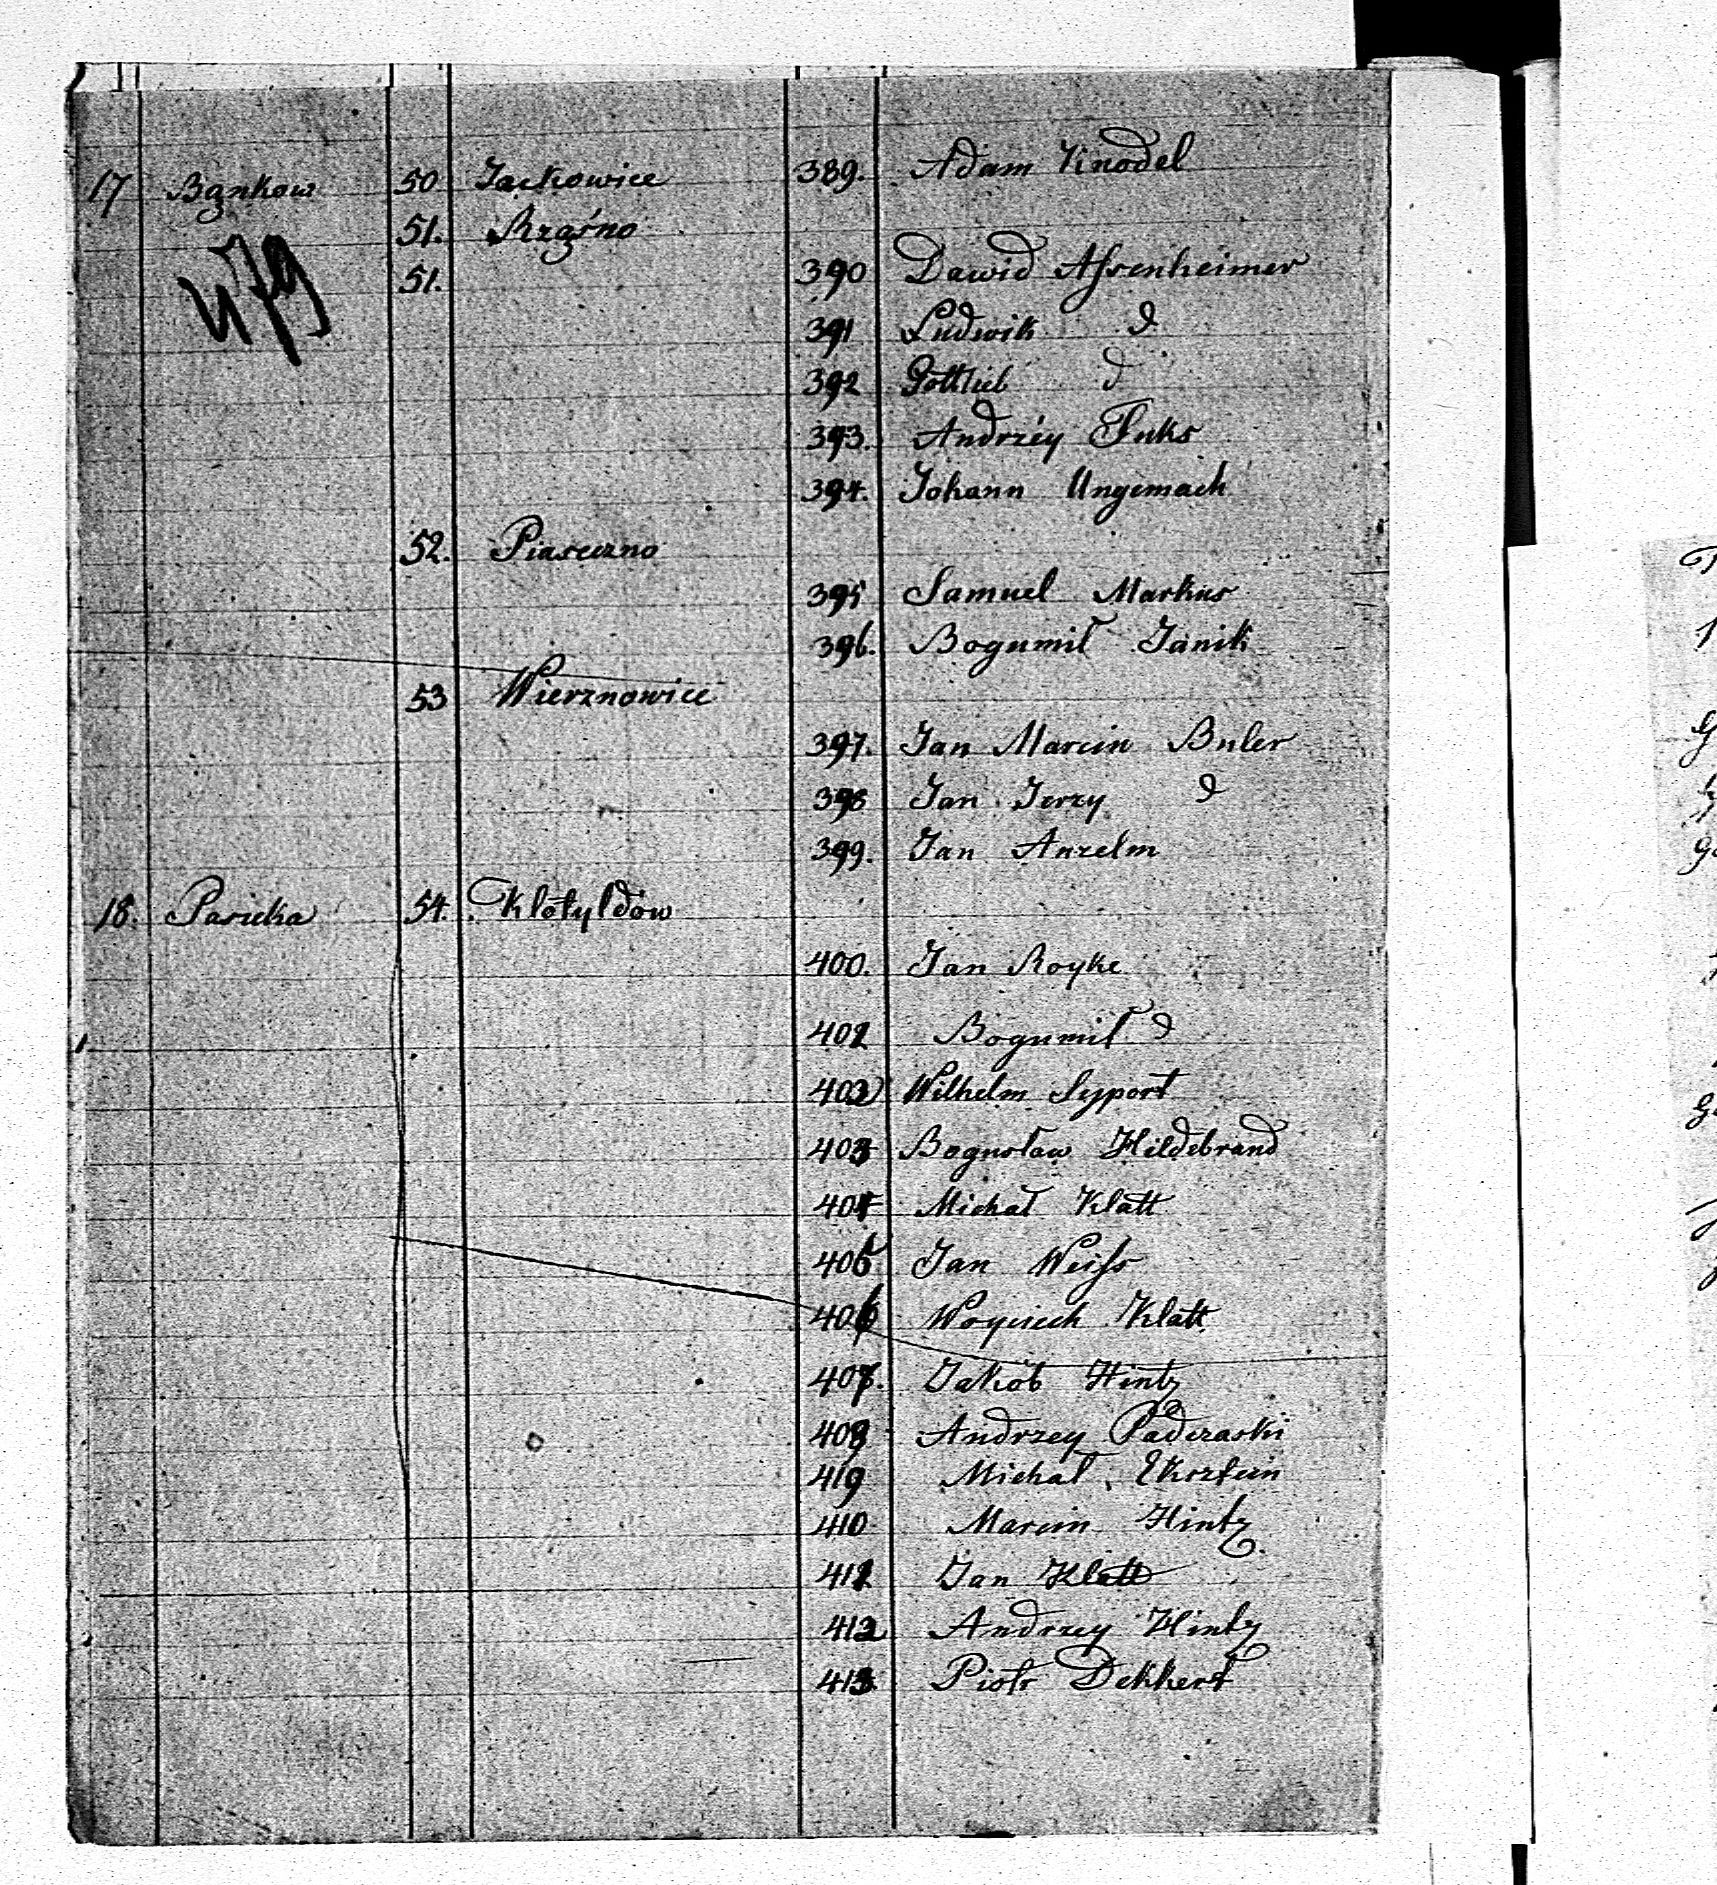 17 Bąnkow 50 Jackowice 389. Adam Knodel
51. Rząśno
479
51. 390 Dawid Assenheimer
391 Ludwik d
392 Gottlieb d
393. Andrzéy Fuks
394. Johann Ungemach
52. Piaseczno
395 Samuel Markus
396. Bogumił Janik
53 Wierznowice
397. Jan Marcin Buler
398 Jan Jerzy d
399. Jan Anzelm
18. Pasieka 54. Klotyldow
400. Jan Royke
401 Bogumił d
402 Wilhelm Seyport
403 Bogusław Hildebrand
404 Michał Klatt
405 Jan Weiss
406 Woyciech Klatt
407. Jakób Hintz
408 Andrzey Paderaski
419 Michał Eksztein
410 Marcin Hintz
411 Jan Klatt
412 Andrzey Hintz
413 Piotr Dekkert